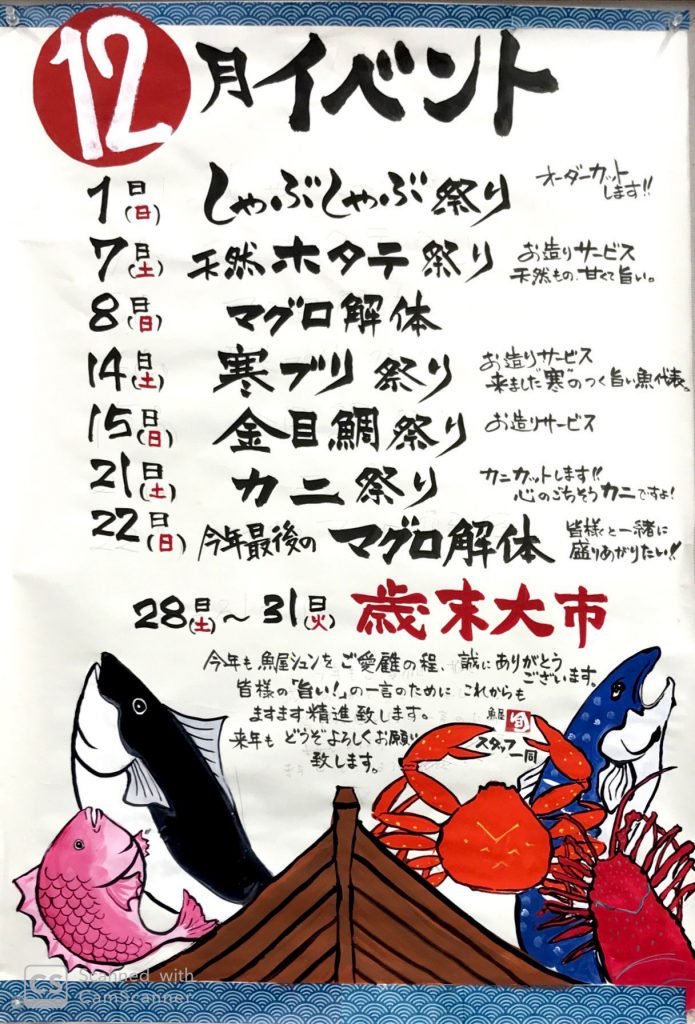 12月イベント
1日(日) しゃぶしゃぶ祭り オーダーカット
します!!
7日(土) 天然ホタテ祭り お造りサービス
天然もの、甘くて旨い。
8日(日) マグロ解体
14日(土) 寒ブリ祭り お造りサービス
来ました"寒"のつく旨い魚代表。
15日(日) 金目鯛祭り お造りサービス
21日(土) カニ祭り カニカットします!!
心のごちそうカニですよ!
22日(日) 今年最後の マグロ解体 皆様と一緒に
盛りあがりたい!!
28日(土)〜31日(火) 歳末大市
今年も魚屋シュンをご愛雇の程、誠にありがとう
ございます。
皆様の「旨い!」の一言のために これからも
ますます精進致します。
来年も どうぞよろしくお願い
致します。
魚屋 旬
スタッフ一同
CS Scanned with
CamScanner